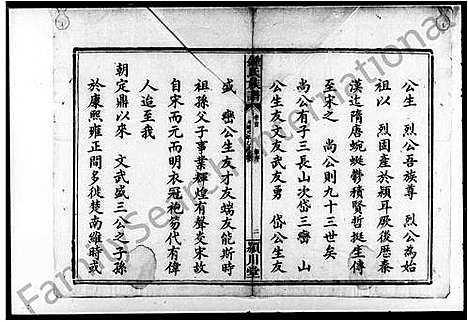 公生 烈公吾族尊 烈公為始
祖以 烈固產於潁耳厥後歷秦
漢迄隋唐蜿蜒鬱積賢哲挺生傳
至宋之 尚公則九十三世矣
尚公有子三長山次岱三巒 山
公生友文友武友勇 岱公生友
鍾氏族譜
二 潁川堂
盛 巒公生友才友端友能斯時
祖孫父子事業輝煌有聲炎宋故
自宋而元而明衣冠袍笏代有偉
人迨至我
朝定鼎以來 文武盛三公之子孫
於康熙雍正間多徙楚南維時或
FamilySearch International